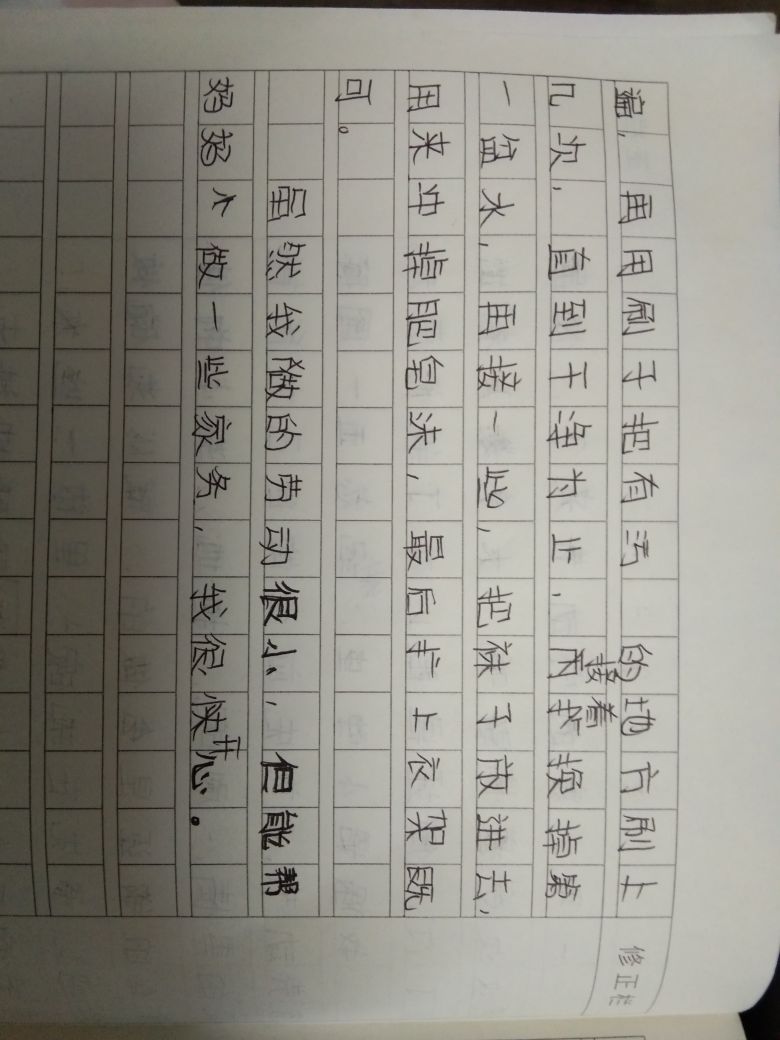 遍，再用刷子把有污的地方刷上
几次，直到干净为止.接着换掉第
一盆水，再接一些，把袜子放进去，
用来冲掉肥皂沫，最后扩上衣架既
可。
虽然我做的劳动很小，但能帮
妈妈做一些家务，我很开心。
修正栏